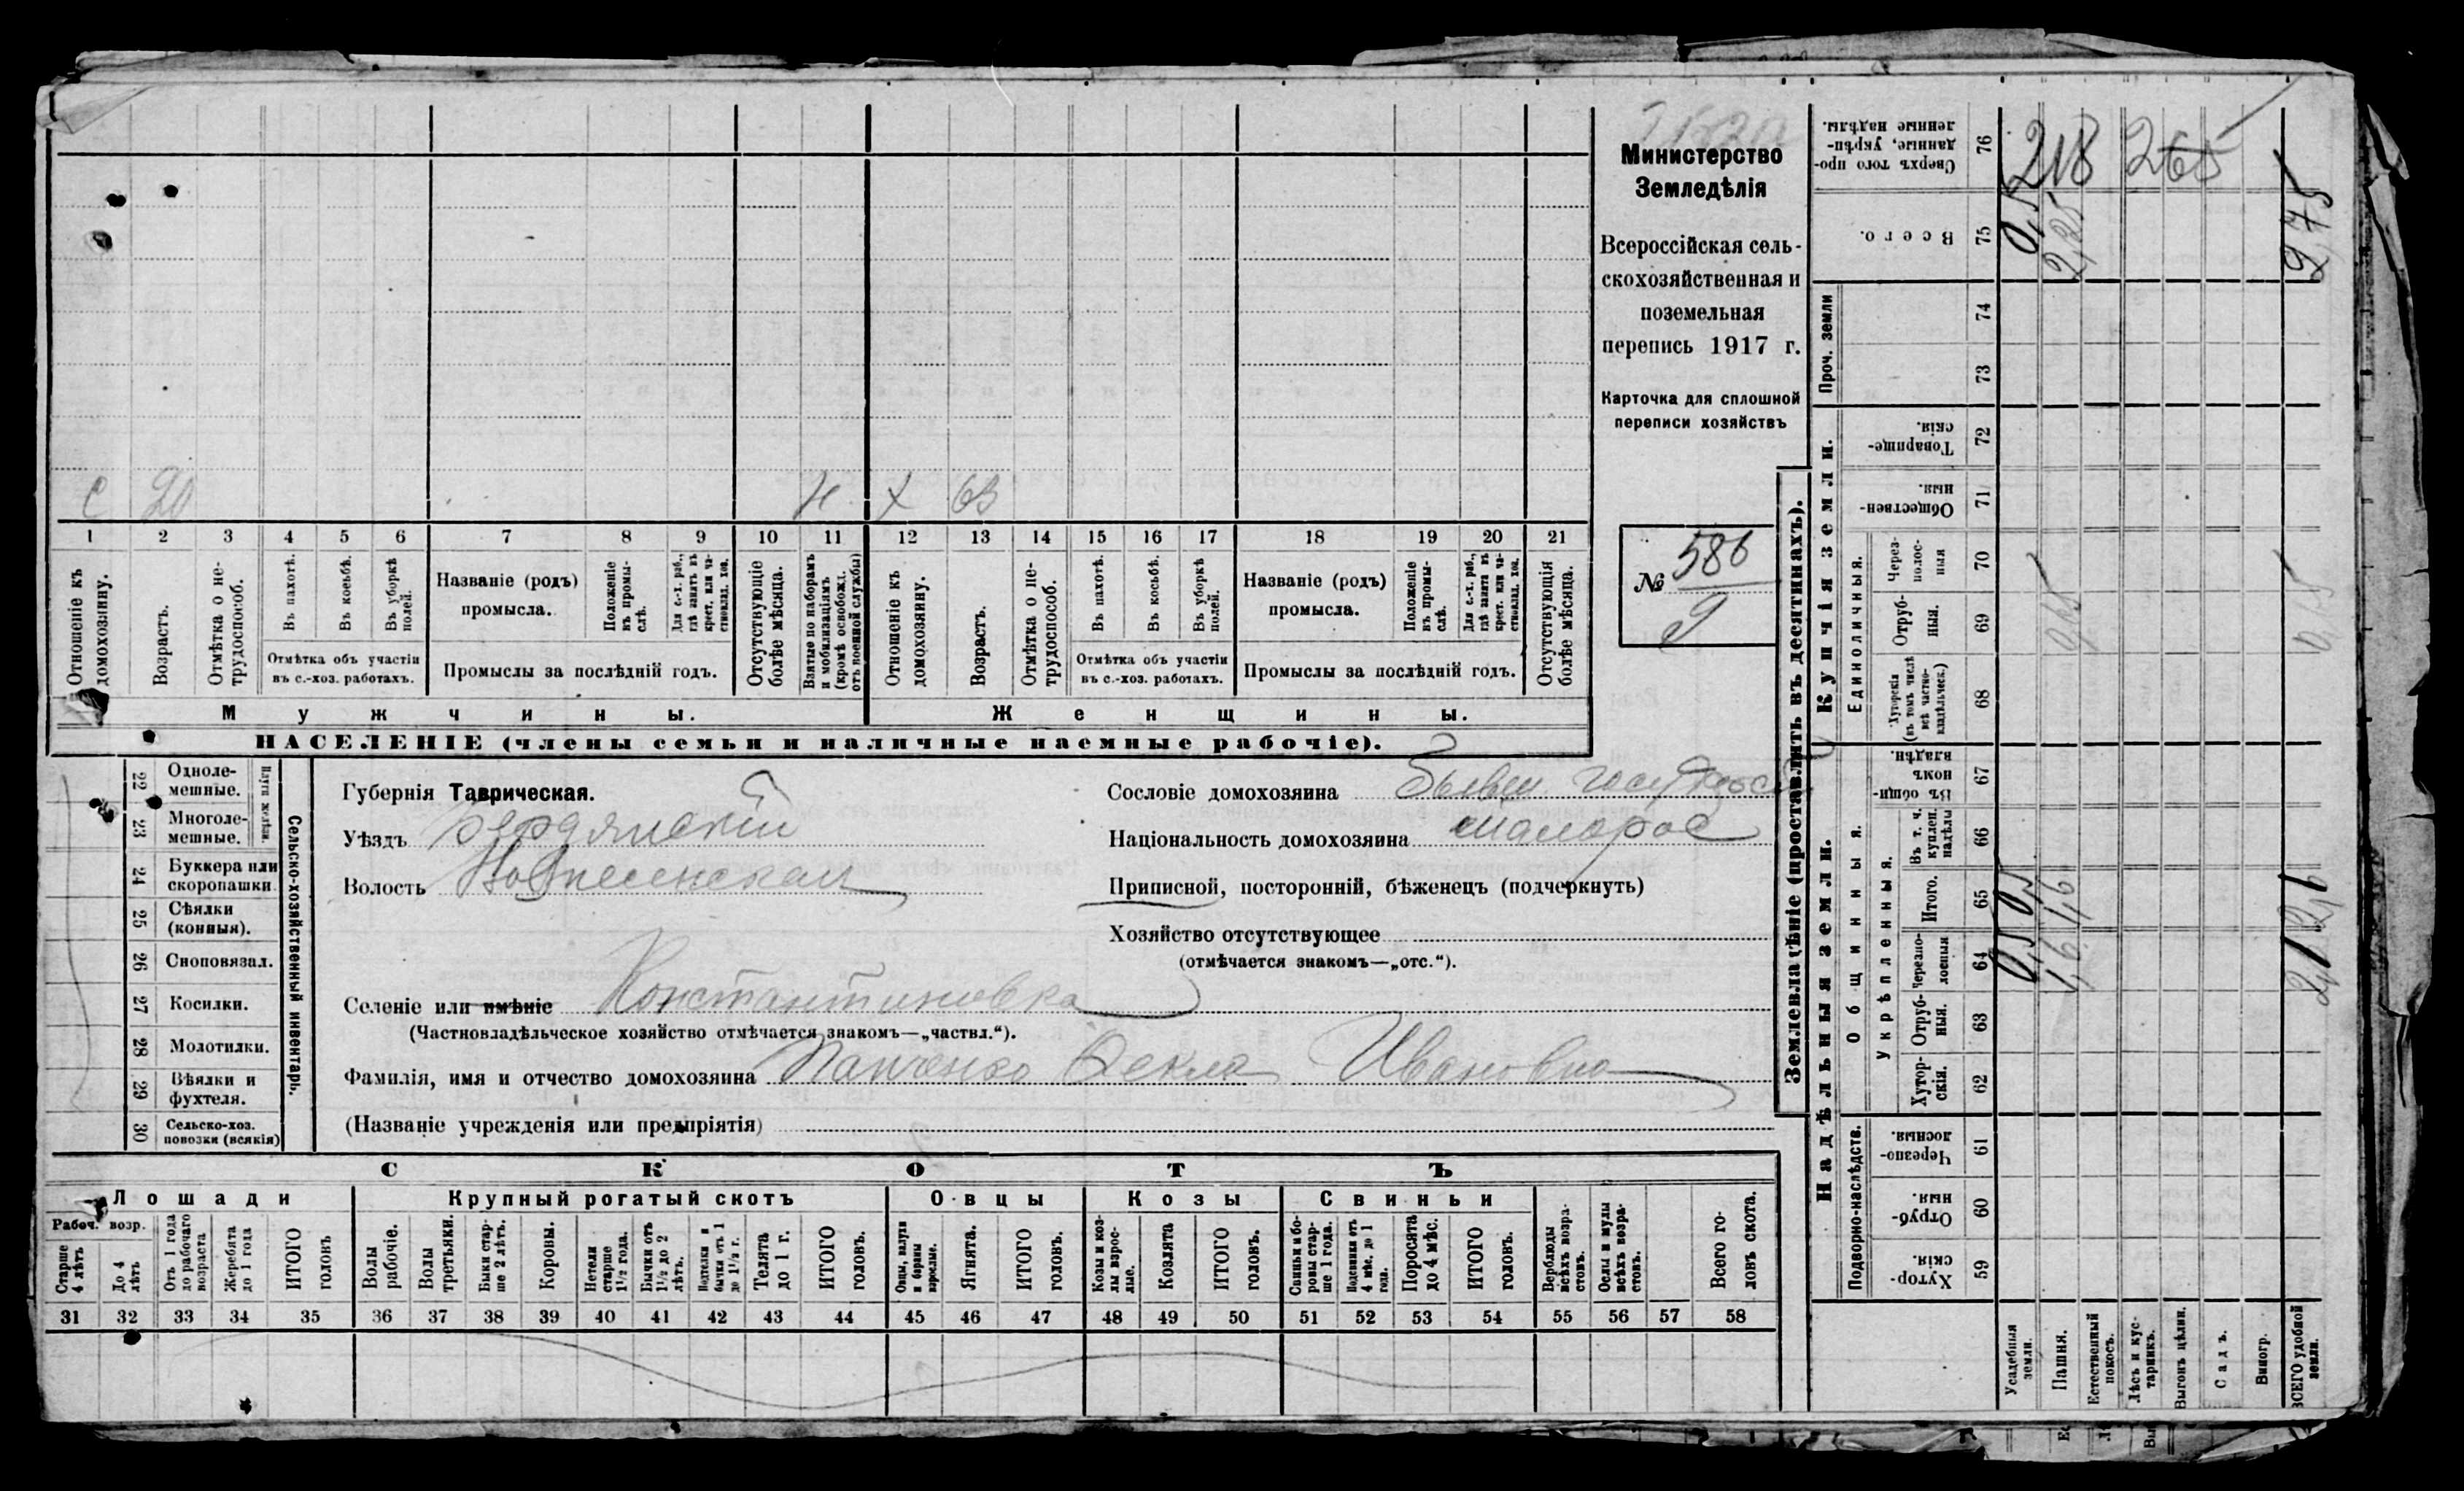 Министерство
Земледѣлія
Всероссійская сель-
скохозяйственная и
поземельная
перепись 1917 г.
Карточка для сплошной
переписи хозяйствъ
№ 586
9
С 20 Н Х 63
1 2 3 4 5 6 7 8 9 10 11 12 13 14 15 16 17 18 19 20 21
Отношеніе къ домохозяину.
Возрастъ.
Отмѣтка о не-трудоспособ.
Въ пахотѣ.
Въ косьбѣ.
Въ уборкѣ полей.
Отмѣтка объ участіи
въ с.-хоз. работахъ.
Названіе (родъ)
промысла.
Положеніе въ промы-слѣ.
Для с.-х. раб., гдѣ занятъ въ крест. или ча-стновлад. хоз.
Промыслы за послѣдній годъ.
Отсутствующіе болѣе мѣсяца.
Взятые по наборамъ и мобилизаціямъ (кромѣ освобожд. отъ военной службы)
Отношеніе къ домохозяину.
Возрастъ.
Отмѣтка о не-трудоспособ.
Въ пахотѣ.
Въ косьбѣ.
Въ уборкѣ полей.
Отмѣтка объ участіи
въ с.-хоз. работахъ.
Названіе (родъ)
промысла.
Положеніе въ промы-слѣ.
Для с.-х. раб., гдѣ занята въ крест. или ча-стновлад. хоз.
Промыслы за послѣдній годъ.
Отсутствующія болѣе мѣсяца.
Мужчины. Женщины.
НАСЕЛЕНІЕ (члены семьи и наличные наемные рабочіе).
Сельско-хозяйственный инвентарь.
22 Одноле-мешные.
23 Многоле-мешные.
24 Буккера или скоропашки
25 Сѣялки (конныя).
26 Сноповязал.
27 Косилки.
28 Молотилки.
29 Вѣялки и фухтеля.
30 Сельско-хоз. повозки (всякія)
Губернія Таврическая.
Уѣздъ Бердянскій
Волость
Сословіе домохозяина Бывш.
Національность домохозяина малорос
Приписной, посторонній, бѣженецъ (подчеркнуть)
Хозяйство отсутствующее
(отмѣчается знакомъ—„отс.“).
Селеніе или имѣніе Константиновка
(Частновладѣльческое хозяйство отмѣчается знакомъ—„частвл.“).
Фамилія, имя и отчество домохозяина Панченко Фекла Ивановна
(Названіе учрежденія или предпріятія)
СКОТЪ
Лошади Крупный рогатый скотъ Овцы Козы Свиньи
Рабоч. возр.
Старше 4 лѣтъ
До 4 лѣтъ
Отъ 1 года до рабочаго возраста
Жеребята до 1 года
ИТОГО головъ
Волы рабочіе.
Волы третьяки.
Быки стар-ше 2 лѣтъ.
Коровы.
Нетели старше 1½ года.
Бычки отъ 1½ до 2 лѣтъ.
Подтелки и бычки отъ 1 до 1½ г.
Телята до 1 г.
ИТОГО головъ.
Овцы, валухи и бараны взрослые.
Ягнята.
ИТОГО головъ.
Козы и коз-лы взрос-лые.
Козлята
ИТОГО головъ.
Свиньи и бо-ровы стар-ше 1 года.
Подсвинки отъ 4 мѣс. до 1 года.
Поросята до 4 мѣс.
ИТОГО головъ.
Верблюды всѣхъ возра-стовъ.
Ослы и мулы всѣхъ возра-стовъ.
Всего го-ловъ скота.
31 32 33 34 35 36 37 38 39 40 41 42 43 44 45 46 47 48 49 50 51 52 53 54 55 56 57 58
Землевладѣніе (проставлять въ десятинахъ).
Надѣльныя земли. Купчія земли. Проч. земли
Подворно-наслѣдств.
Общинныя.
Укрѣпленныя.
Единоличныя.
Хутор-скія. 59
Отруб-ныя. 60
Черезпо-лосныя. 61
Хутор-скія. 62
Отруб-ныя. 63
Черезпо-лосныя 64
Итого. 65
Въ т. ч. куплен. надѣлы 66
Въ общи-номъ владѣн. 67
Хуторскія (въ томъ числѣ всѣ частно-владѣльческ.) 68
Отруб-ныя. 69
Через-полос-ныя 70
Обществен-ныя. 71
Товарище-скія. 72
73
74
Всего. 75
Сверхъ того про-данные, укрѣп-ленные надѣлы. 76
Усадебныя земли. 0,5 0,5 0,5
Пашня. 1,6 1,6 2,25
Естественный покосъ.
Лѣсъ и кус-тарникъ.
Выгонъ цѣлин.
Садъ.
Виногр.
ВСЕГО удобной земли. 2,75
218 265